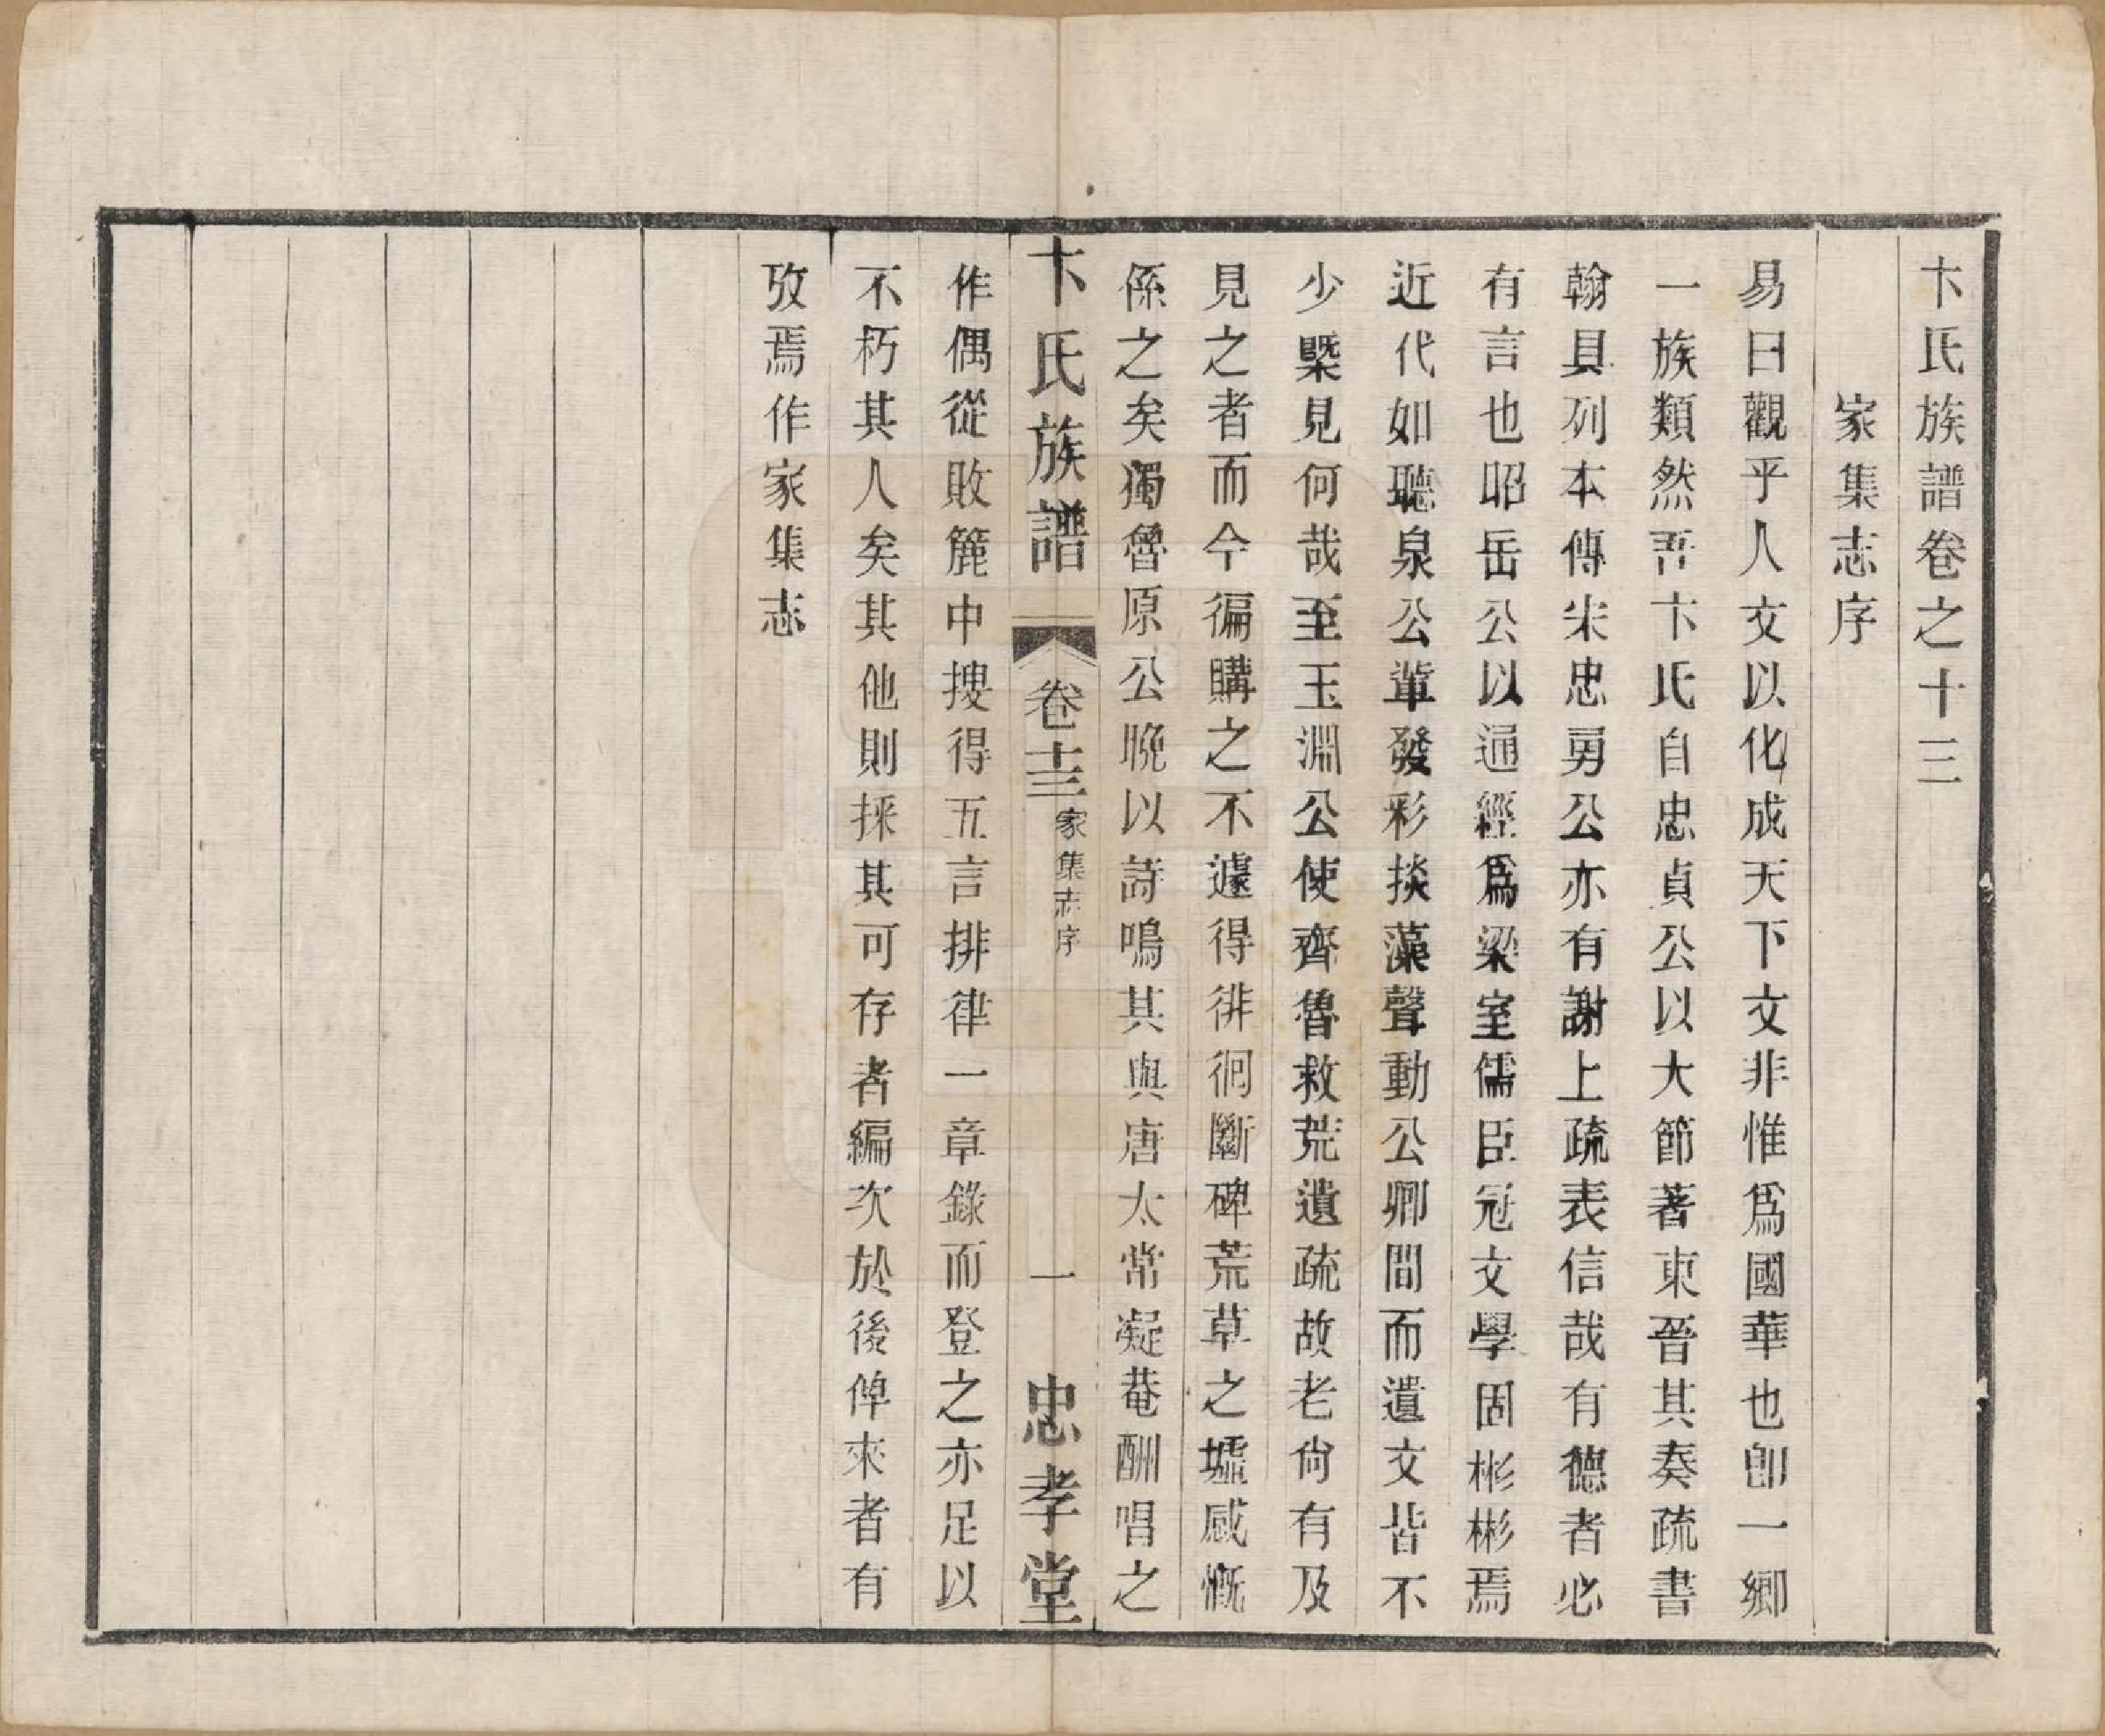 卞氏族譜卷之十三
家集志序
易曰觀乎人文以化成天下文非惟爲國華也卽一鄉
一族類然吾卞氏自忠貞公以大節著東晉其奏疏書
翰具列本傳宋忠勇公亦有謝上疏表信哉有德者必
有言也昭岳公以通經爲梁室儒臣冠文學固彬彬焉
近代如聽泉公輩發彩掞藻聲動公卿間而遺文皆不
少槩見何哉至玉淵公使齊魯救荒遺疏故老尙有及
見之者而今徧購之不遽得徘徊斷碑荒草之墟感慨
係之矣獨魯原公晚以詩鳴其與唐太常凝菴酬唱之
卞氏族譜
卷十三
家集志序
一
忠孝堂
作偶從敗簏中搜得五言排律一章錄而登之亦足以
不朽其人矣其他則採其可存者編次於後俾來者有
攷焉作家集志